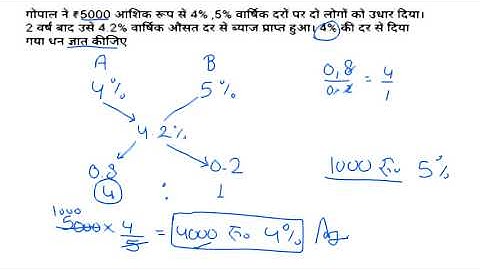 गोपाल ने ₹5000 आशिक रूप से 4% ,5% वार्षिक दरों पर दो लोगों को उधार दिया।
2 वर्ष बाद उसे 4.2% वार्षिक औसत दर से ब्याज प्राप्त हुआ। 4% की दर से दिया
गया धन ज्ञात कीजिए
A B
4% 5%
0.8/0.2 = 4/1
4.2%
0.8 0.2
4 : 1
1000 रू० 5%
1000
5000 × 4/5 = 4000 रू० 4% Ans